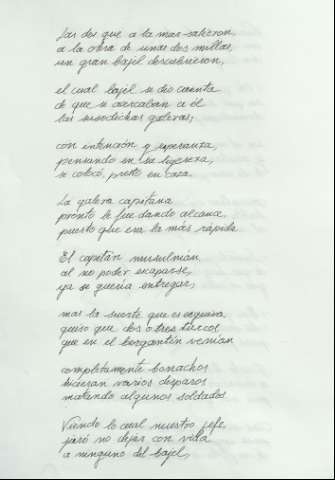 Las dos que a la mar salieron
a la obra de unas dos millas,
un gran bajel descubrieron,
el cual bajel se dio cuenta
de que se acercaban a él
las susodichas galeras,
con intención y esperanza,
pensando en su ligereza,
se colocó, presto en caza.
La galera capitana
pronto le fue dando alcance,
puesto que era la más rápida.
El capitán musulmán
al no poder escaparse,
ya se quería entregar,
mas la suerte que es esquiva,
quiso que dos o tres turcos
que en el bergantín venían
completamente borrachos
hicieran varios disparos
matando algunos soldados.
Viendo lo cual nuestro jefe,
juró no dejar con vida
a ninguno del bajel,